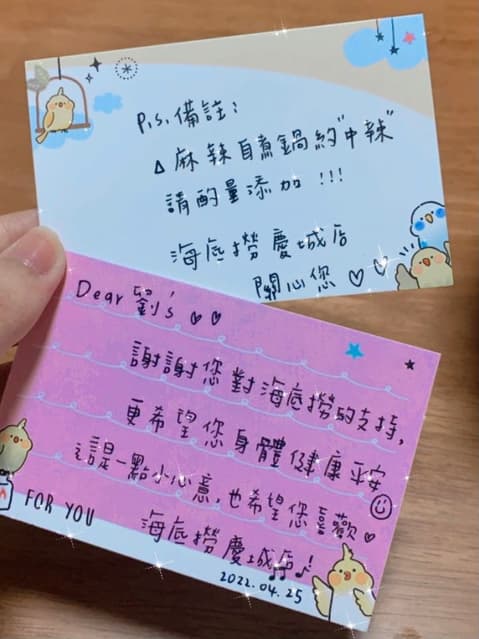 P.S. 備註：
△麻辣自煮鍋約"中辣"
請酌量添加!!!
海底撈慶城店
關心您♡♡
Dear 劉's ♡♡
謝謝您對海底撈的支持,
更希望您身體健康平安
這是一點小小心意,也希望您喜歡♡
FOR YOU
海底撈慶城店!
2022.04.25